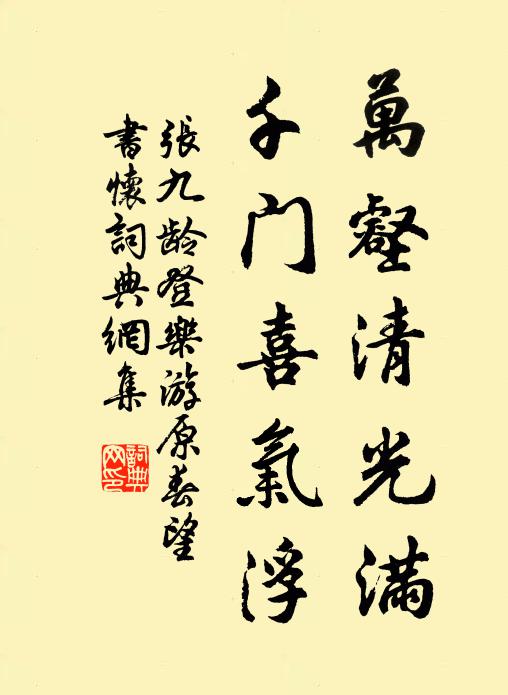 萬壑清光滿
千門喜氣浮
張九齡登樂游原春望
書懷詞典網集
詞典網印